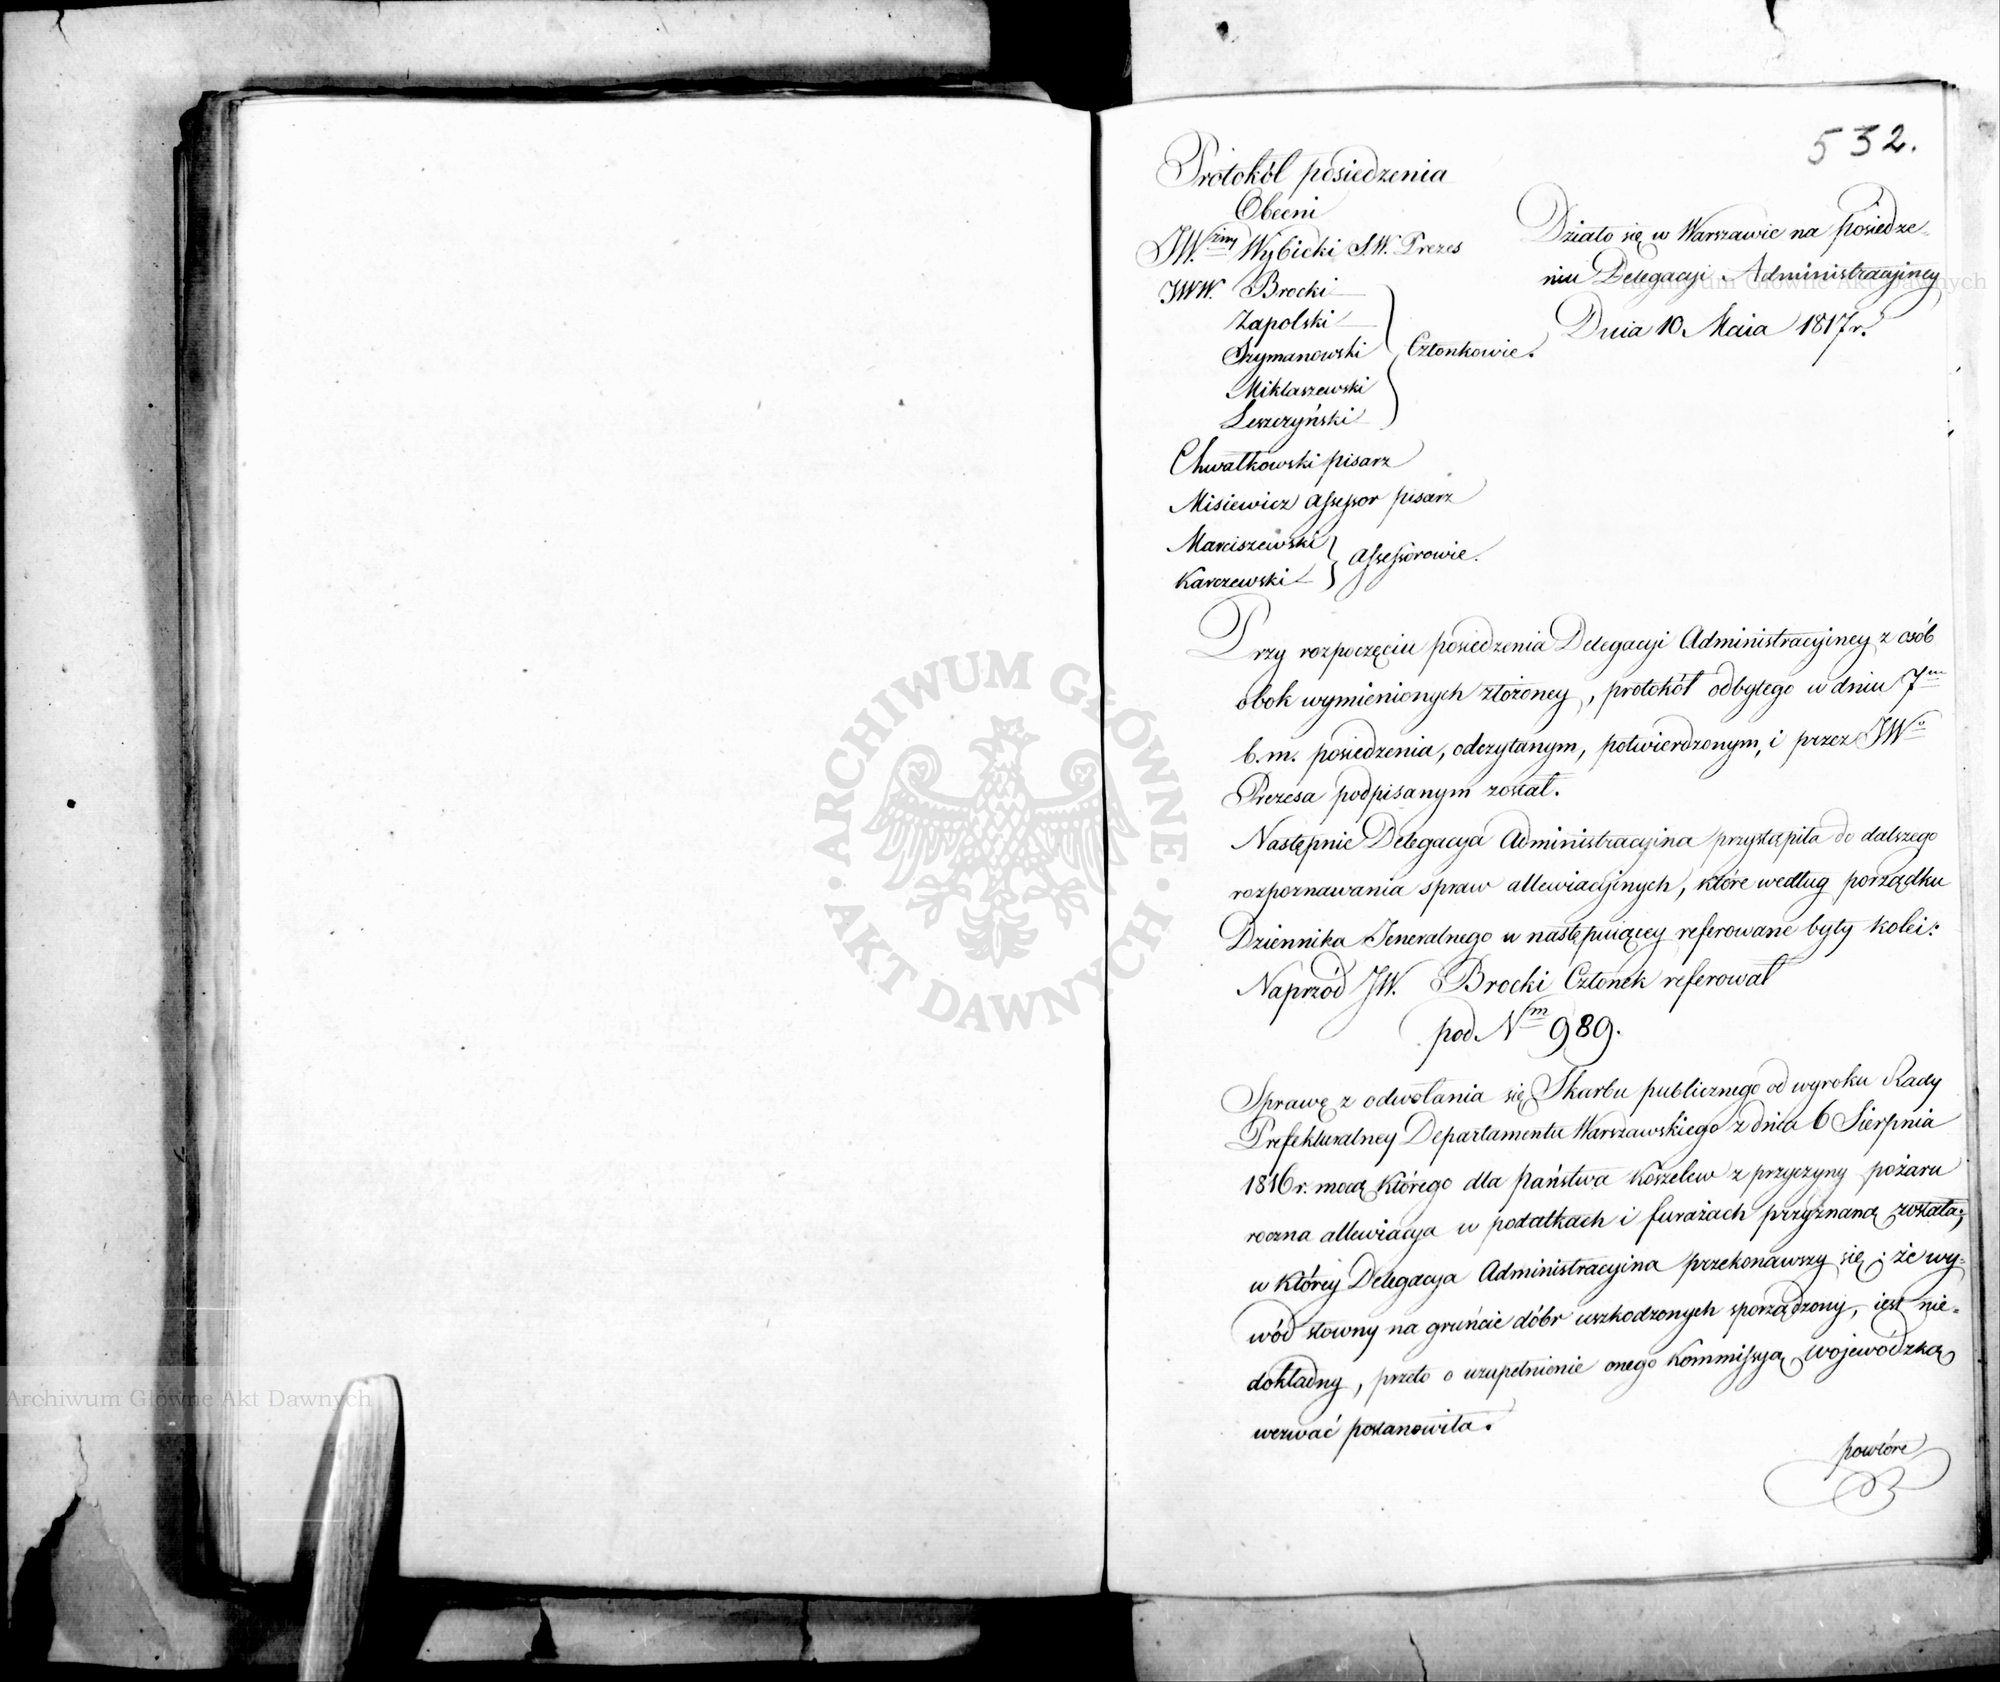 532.
Protokół posiedzenia
Obecni
JW. Wybicki S.W. Prezes
JWW. Brocki
Zapolski
Szymanowski
Miklaszewski
Leszczyński
Członkowie.
Chwalkowski pisarz
Misiewicz Assessor pisarz
Marciszewski
Karczewski
Assessorowie.
Działo się w Warszawie na posiedze-
niu Delegacyi Administracyiney
Dnia 10 Maia 1817 r.
Przy rozpoczęciu posiedzenia Delegacyi Administracyiney z osób
obok wymienionych złożoney, protokół odbytego w dniu 7m
b. m. posiedzenia, odczytanym, potwierdzonym, i przez JWo
Prezesa podpisanym został.
Następnie Delegacya Administracyina przystąpiła do dalszego
rozpoznawania spraw allewiacyinych, które według porządku
Dziennika Jeneralnego w następuiącey referowane były kolei:
Naprzód JW. Brocki Członek referował
pod Nm 989.
Sprawę z odwołania się Skarbu publicznego od wyroku Rady
Prefekturalney Departamentu Warszawskiego z dnia 6 Sierpnia
1816 r. mocą którego dla państwa Koszelew z przyczyny pożaru
roczna allewiacya w podatkach i furażach przyznaną została;
w którey Delegacya Administracyina przekonawszy się; że wy-
wód słowny na gruńcie dóbr uszkodzonych sporządzony, iest nie-
dokładny, przeto o uzupełnienie onego Kommissyą Wojewódzką
wezwać postanowiła.
powtóre
ARCHIWUM GŁÓWNE
AKT DAWNYCH
Archiwum Główne Akt Dawnych
Archiwum Główne Akt Dawnych